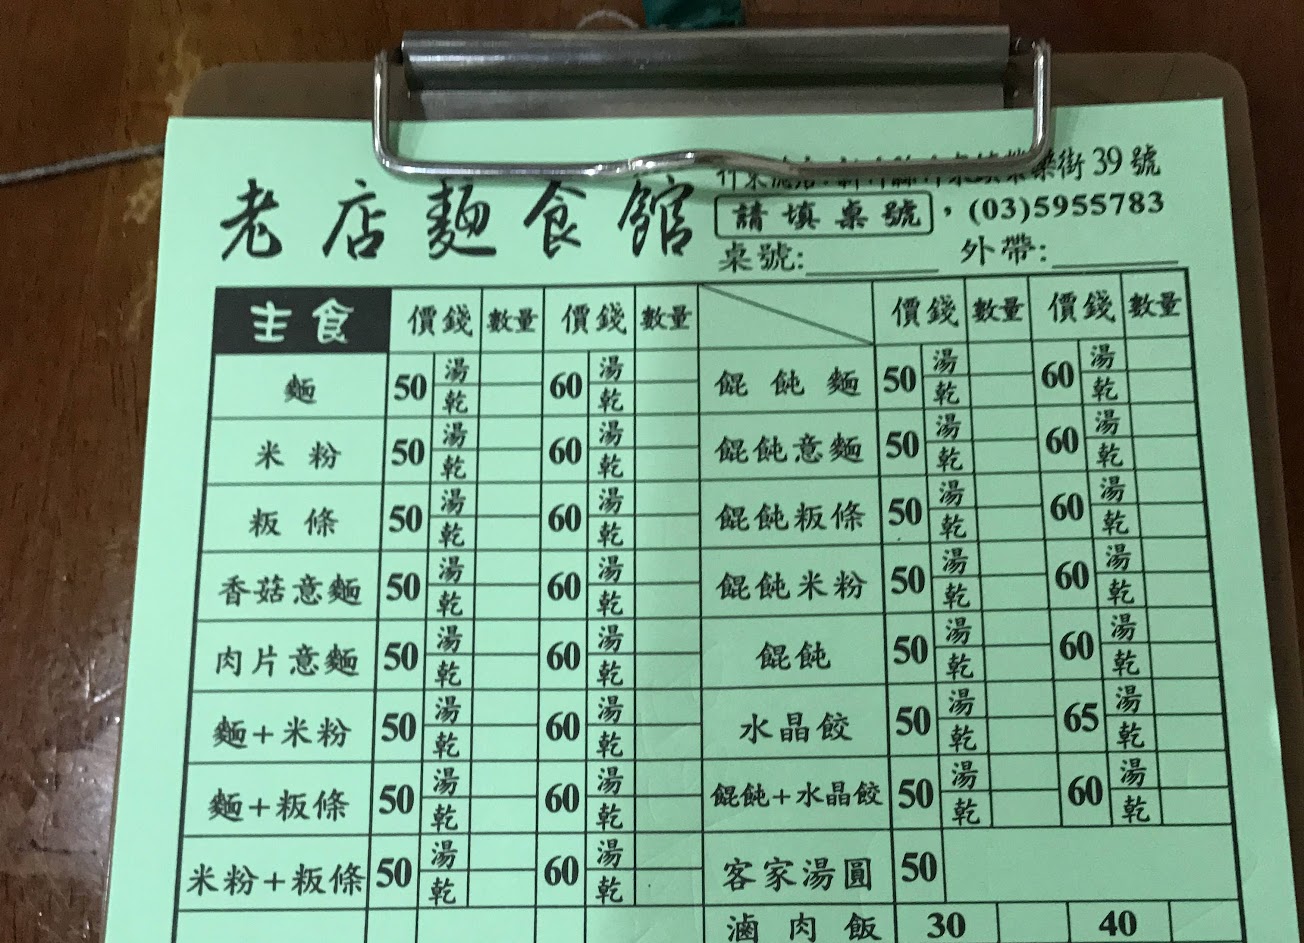 街39號
老店麵食館
請填桌號，(03)5955783
桌號:　外帶:
主食 價錢 數量 價錢 數量 價錢 數量 價錢 數量
麵 50 湯 乾 60 湯 乾 餛飩麵 50 湯 乾 60 湯 乾
米粉 50 湯 乾 60 湯 乾 餛飩意麵 50 湯 乾 60 湯 乾
粄條 50 湯 乾 60 湯 乾 餛飩粄條 50 湯 乾 60 湯 乾
香菇意麵 50 湯 乾 60 湯 乾 餛飩米粉 50 湯 乾 60 湯 乾
肉片意麵 50 湯 乾 60 湯 乾 餛飩 50 湯 乾 60 湯 乾
麵+米粉 50 湯 乾 60 湯 乾 水晶餃 50 湯 乾 65 湯 乾
麵+粄條 50 湯 乾 60 湯 乾 餛飩+水晶餃 50 湯 乾 60 湯 乾
米粉+粄條 50 湯 乾 60 湯 乾 客家湯圓 50
滷肉飯 30 40